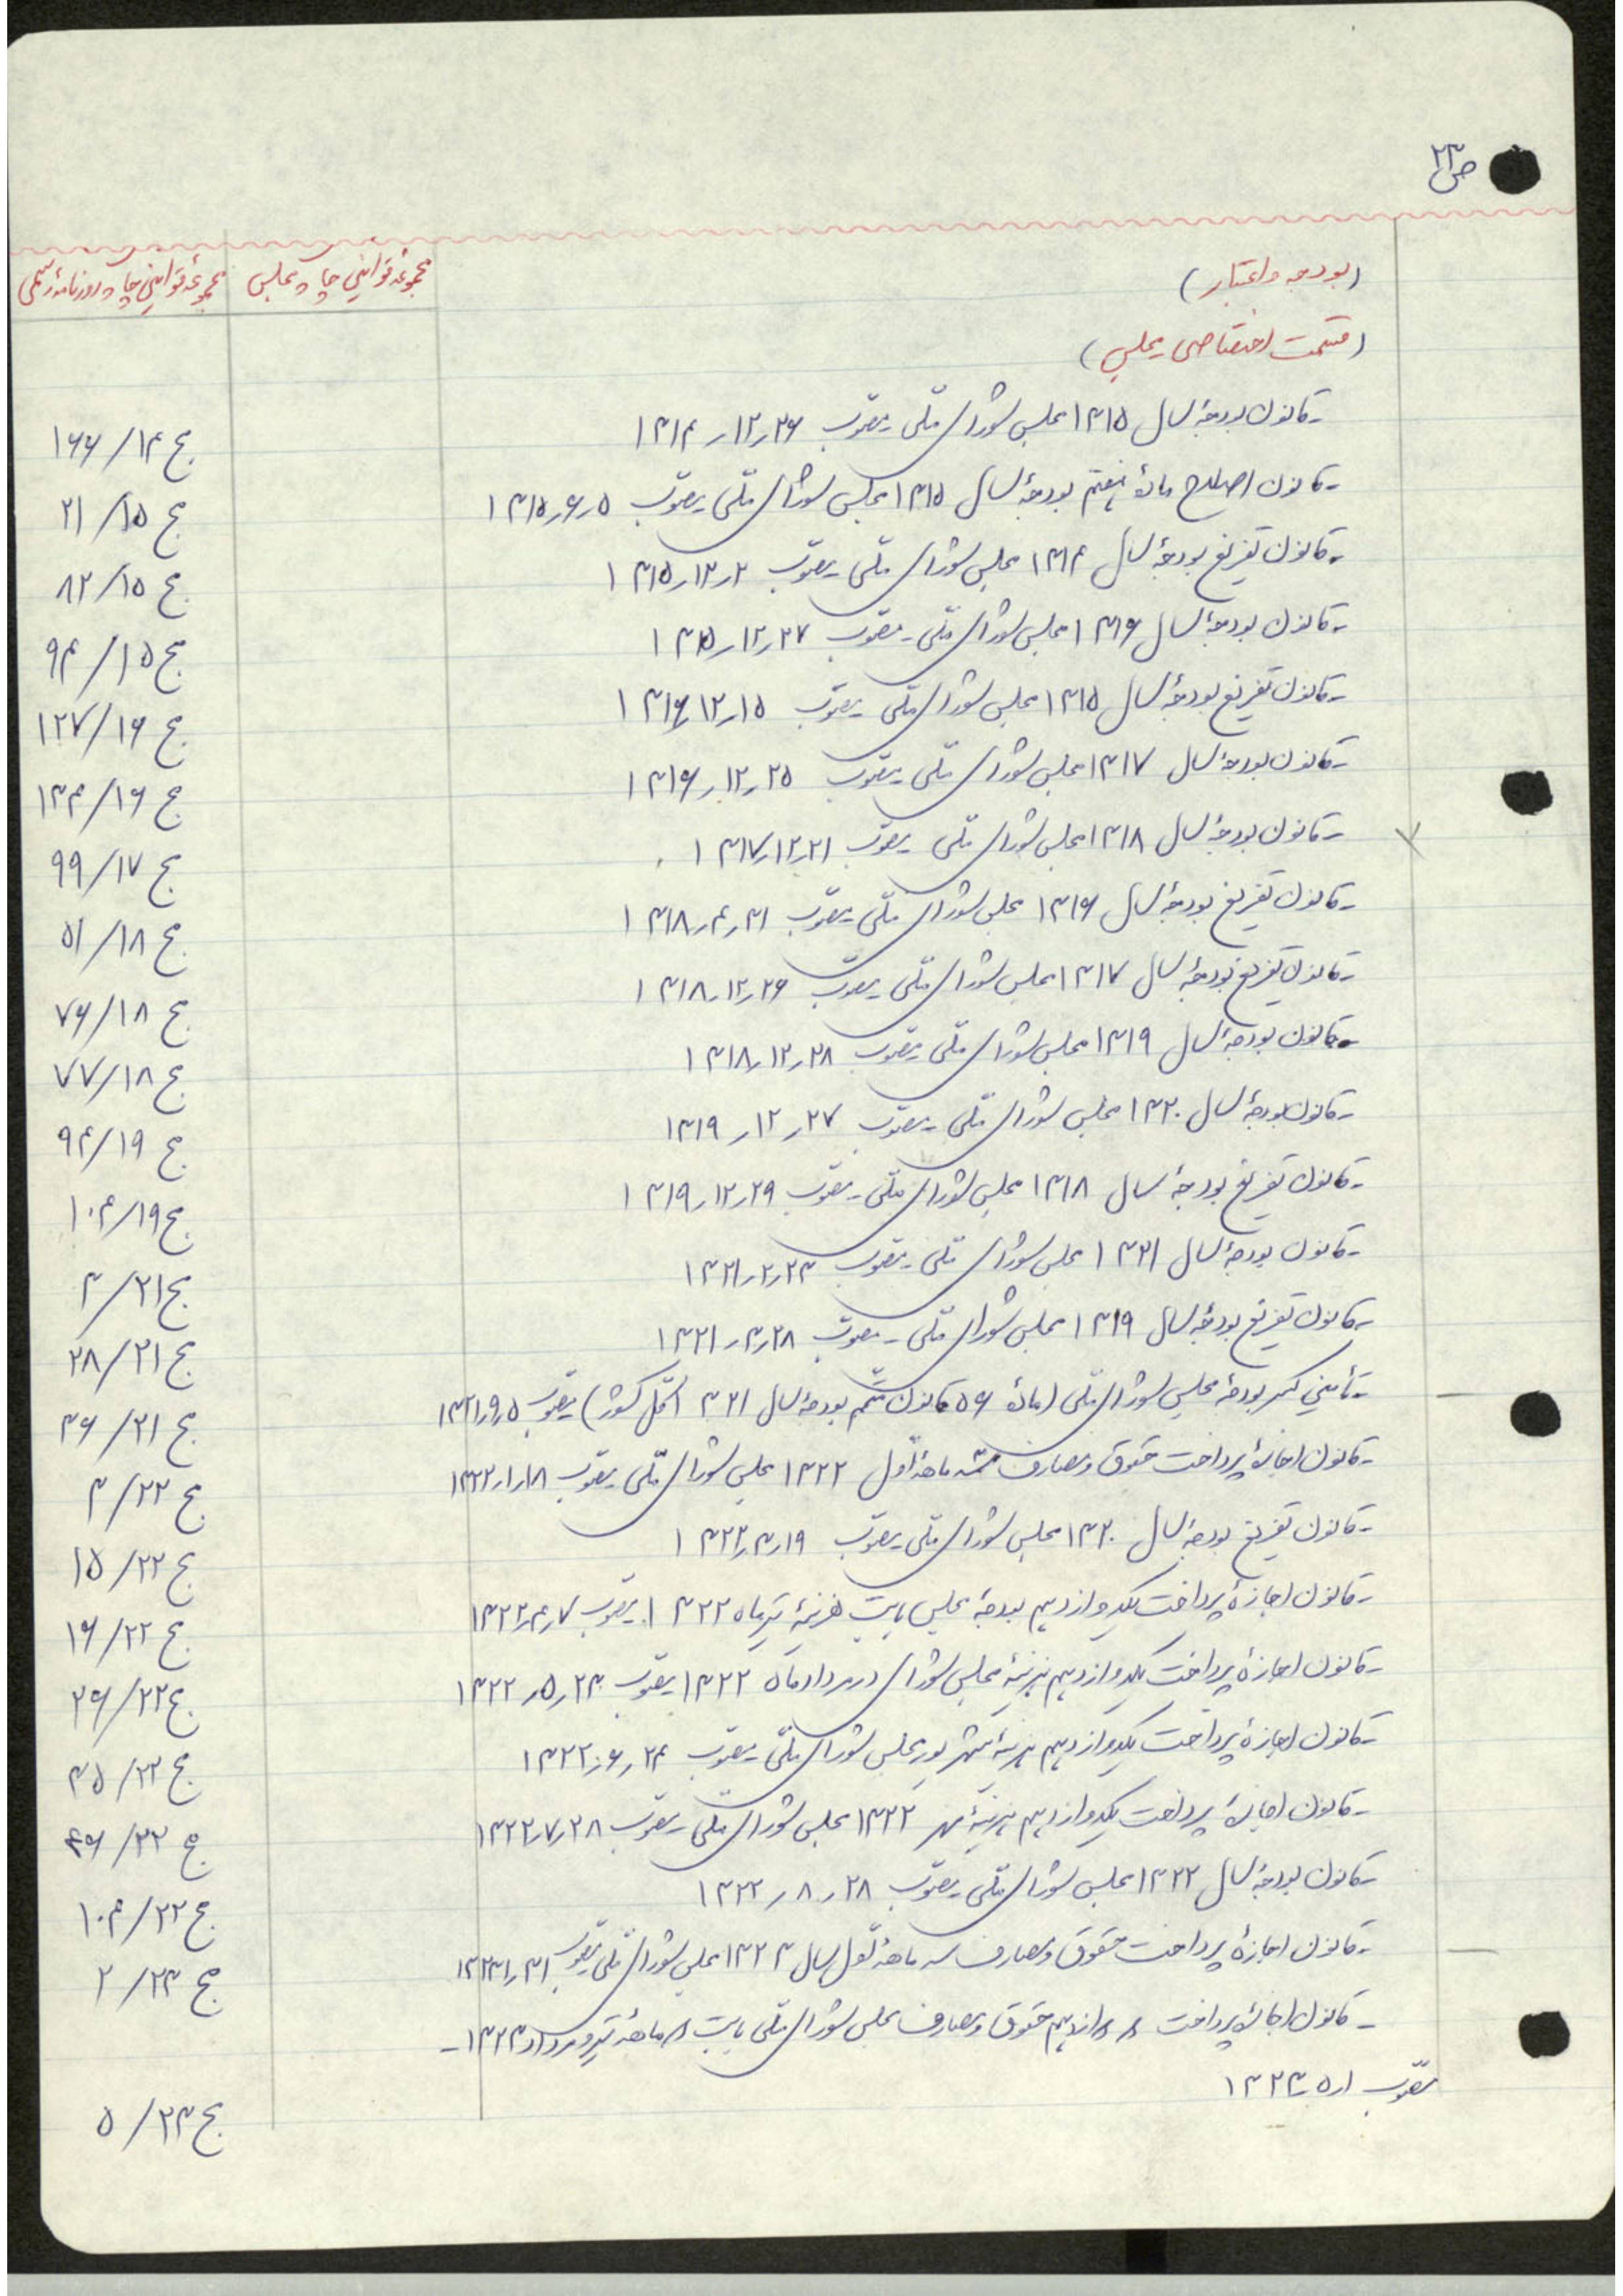 ص ۲۳
(بودجه و اعتبار)
مجموعهٔ قوانین چاپ مجلس
مجموعهٔ قوانین چاپ روزنامهٔ رسمی
(قسمت اختصاصی مجلس)
-قانون بودجهٔ سال ۱۳۱۵ مجلس شورای ملّی مصوّب ۱۳۱۴٫۱۲٫۲۶ ج ۱۴/۱۶۶
-قانون اصلاح مادهٔ هفتم بودجهٔ سال ۱۳۱۵ مجلس شورای ملّی مصوّب ۱۳۱۵٫۶٫۵ ج ۱۵/۲۱
-قانون تفریغ بودجهٔ سال ۱۳۱۴ مجلس شورای ملّی مصوّب ۱۳۱۵٫۱۲٫۲ ج ۱۵/۸۲
-قانون بودجهٔ سال ۱۳۱۶ مجلس شورای ملّی مصوّب ۱۳۱۵٫۱۲٫۲۷ ج ۱۵/۹۴
-قانون تفریغ بودجهٔ سال ۱۳۱۵ مجلس شورای ملّی مصوّب ۱۳۱۶٫۱۲٫۱۵ ج ۱۶/۱۲۷
-قانون بودجهٔ سال ۱۳۱۷ مجلس شورای ملّی مصوّب ۱۳۱۶٫۱۲٫۲۵ ج ۱۶/۱۳۴
-قانون بودجهٔ سال ۱۳۱۸ مجلس شورای ملّی مصوّب ۱۳۱۷٫۱۲٫۲۱ ج ۱۷/۹۹
-قانون تفریغ بودجهٔ سال ۱۳۱۶ مجلس شورای ملّی مصوّب ۱۳۱۸٫۴٫۳۱ ج ۱۸/۵۱
-قانون تفریغ بودجهٔ سال ۱۳۱۷ مجلس شورای ملّی مصوّب ۱۳۱۸٫۱۲٫۲۶ ج ۱۸/۷۶
-قانون بودجهٔ سال ۱۳۱۹ مجلس شورای ملّی مصوّب ۱۳۱۸٫۱۲٫۲۸ ج ۱۸/۷۷
-قانون بودجهٔ سال ۱۳۲۰ مجلس شورای ملّی مصوّب ۱۳۱۹٫۱۲٫۲۷ ج ۱۹/۹۴
-قانون تفریغ بودجهٔ سال ۱۳۱۸ مجلس شورای ملّی مصوّب ۱۳۱۹٫۱۲٫۲۹ ج ۱۹/۱۰۴
-قانون بودجهٔ سال ۱۳۲۱ مجلس شورای ملّی مصوّب ۱۳۲۱٫۲٫۲۳ ج ۲۱/۳
-قانون تفریغ بودجهٔ سال ۱۳۱۹ مجلس شورای ملّی مصوّب ۱۳۲۱٫۳٫۲۸ ج ۲۱/۲۸
-تأمین کسر بودجهٔ مجلس شورای ملّی (مادهٔ ۵۶ قانون متمّم بودجهٔ سال ۱۳۲۱ کل کشور) مصوّب ۱۳۲۱٫۹٫۵ ج ۲۱/۳۶
-قانون اجازهٔ پرداخت حقوق و مصارف سه ماههٔ اوّل ۱۳۲۲ مجلس شورای ملّی مصوّب ۱۳۲۲٫۱٫۱۸ ج ۲۲/۳
-قانون تفریغ بودجهٔ سال ۱۳۲۰ مجلس شورای ملّی مصوّب ۱۳۲۲٫۳٫۱۹ ج ۲۲/۱۵
-قانون اجازهٔ پرداخت یکدوازدهم بودجهٔ مجلس بابت هزینهٔ تیرماه ۱۳۲۲ مصوّب ۱۳۲۲٫۴٫۷ ج ۲۲/۱۶
-قانون اجازهٔ پرداخت یکدوازدهم هزینهٔ مجلس شورای در مردادماه ۱۳۲۲ مصوّب ۱۳۲۲٫۵٫۲۳ ج ۲۲/۲۶
-قانون اجازهٔ پرداخت یکدوازدهم هزینهٔ شهریور مجلس شورای ملّی مصوّب ۱۳۲۲٫۶٫۲۴ ج ۲۲/۳۵
-قانون اجازهٔ پرداخت یکدوازدهم هزینهٔ مهر ۱۳۲۲ مجلس شورای ملّی مصوّب ۱۳۲۲٫۷٫۲۸ ج ۲۲/۴۶
-قانون بودجهٔ سال ۱۳۲۲ مجلس شورای ملّی مصوّب ۱۳۲۲٫۸٫۲۸ ج ۲۲/۱۰۴
-قانون اجازهٔ پرداخت حقوق و مصارف سه ماههٔ اوّل سال ۱۳۲۳ مجلس شورای ملّی مصوّب ۱۳۲۳٫۱٫۳۱ ج ۲۳/۲
-قانون اجازهٔ پرداخت حقوق و مصارف مجلس شورای ملّی بابت ماههٔ تیر و مرداد ۱۳۲۳-
مصوّب ۱۳۲۳٫۵٫۱ ج ۲۳/۵